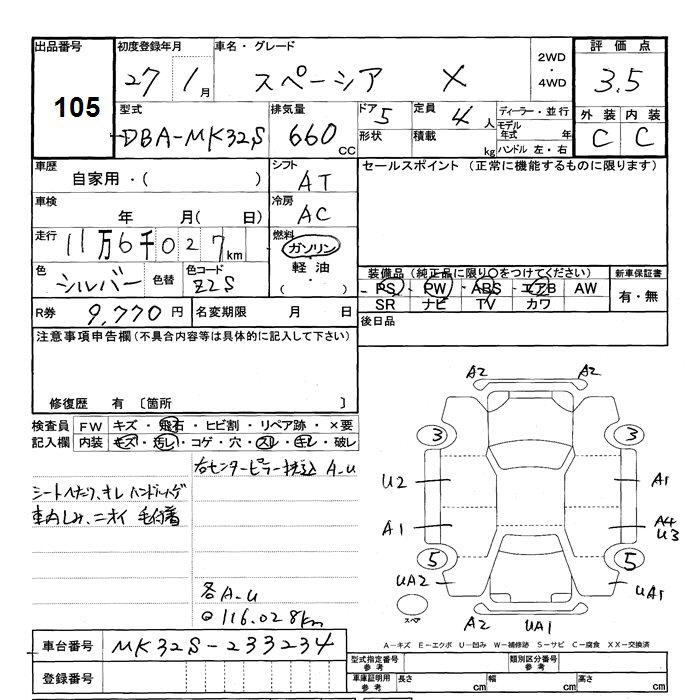 出品番号
105
初度登録年月
27 1月
車名・グレード
スペーシア X
2WD・4WD
評価点
3.5
外装 内装
C C
型式
DBA-MK32S
排気量
660 CC
ドア 5
形状
定員 4人
積載 kg
ディーラー・並行
モデル年式 年
ハンドル 左・右
車歴
自家用・( )
シフト
AT
セールスポイント (正常に機能するものに限ります)
車検
年 月( 日)
冷房
AC
走行
11万6千027km
燃料
ガソリン
軽油
・( )
色
シルバー
色替
色コード
Z2S
装備品(純正品に限り○をつけてください)
PS・PW・ABS・エアB AW
SR ナビ TV カワ
新車保証書
有・無
R券
9,770円
名変期限 月 日
後日品
注意事項申告欄(不具合内容等は具体的に記入して下さい)
修復歴 有 〔箇所 〕
検査員記入欄
FW キズ・飛石・ヒビ割・リペア跡・×要
内装 キズ・汚レ・コゲ・穴・スレ・キレ・破レ
右センターピラー押込 A-U
シートヘたり、オレ
車内しみ、ニオイ 毛付着
各A-U
◎116.028km
A2 A2
3 3
U2 A1
A1 A4
U3
5 5
UA2 UA1
スペア
A2 UA1
車台番号
MK32S-233234
登録番号
A-キズ E-エクボ U-凹み W-補修跡 S-サビ C-腐食 XX-交換済
型式指定番号 参考
類別区分番号 参考
車庫証明用 参考
長さ cm 幅 cm 高さ cm